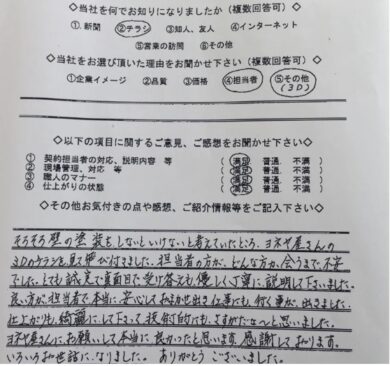 ◇当社を何でお知りになりましたか(複数回答可)
①. 新聞 ②チラシ ③知人、友人 ④インターネット
⑤営業の訪問 ⑥その他
◇当社をお選び頂いた理由をお聞かせ下さい(複数回答可)
①企業イメージ ②品質 ③価格 ④担当者 ⑤その他
(3D)
◇以下の項目に関するご意見、ご感想をお聞かせ下さい◇
① 契約担当者の対応、説明内容 等 ( 満足 普通. 不満 )
② 現場管理、対応 等 ( 満足 普通. 不満 )
③ 職人のマナー ( 満足 普通. 不満 )
④ 仕上がりの状態 ( 満足 普通. 不満 )
◇その他お気付きの点や感想、ご紹介情報等をご記入下さい◇
そろそろ壁の塗装をしないといけないと考えていたところ、ヨネヤ屋さんの
3Dのチラシを見て 付けました。担当者の方が、どんな方か、会うまで不安
でした。とても誠実で真面目で受け答えも、優しく丁寧に説明して下さいました。
良い方が担当者で本当に安心しておまかせ出き仕事にも行く事が、出きました。
仕上がりも、綺麗にして下さって技術的にもさすがだなぁと思いました。
ヨネヤ屋さんにお願いして本当に良かったと思います。感謝しております。
いろいろお世話になりました。ありがとうございました。